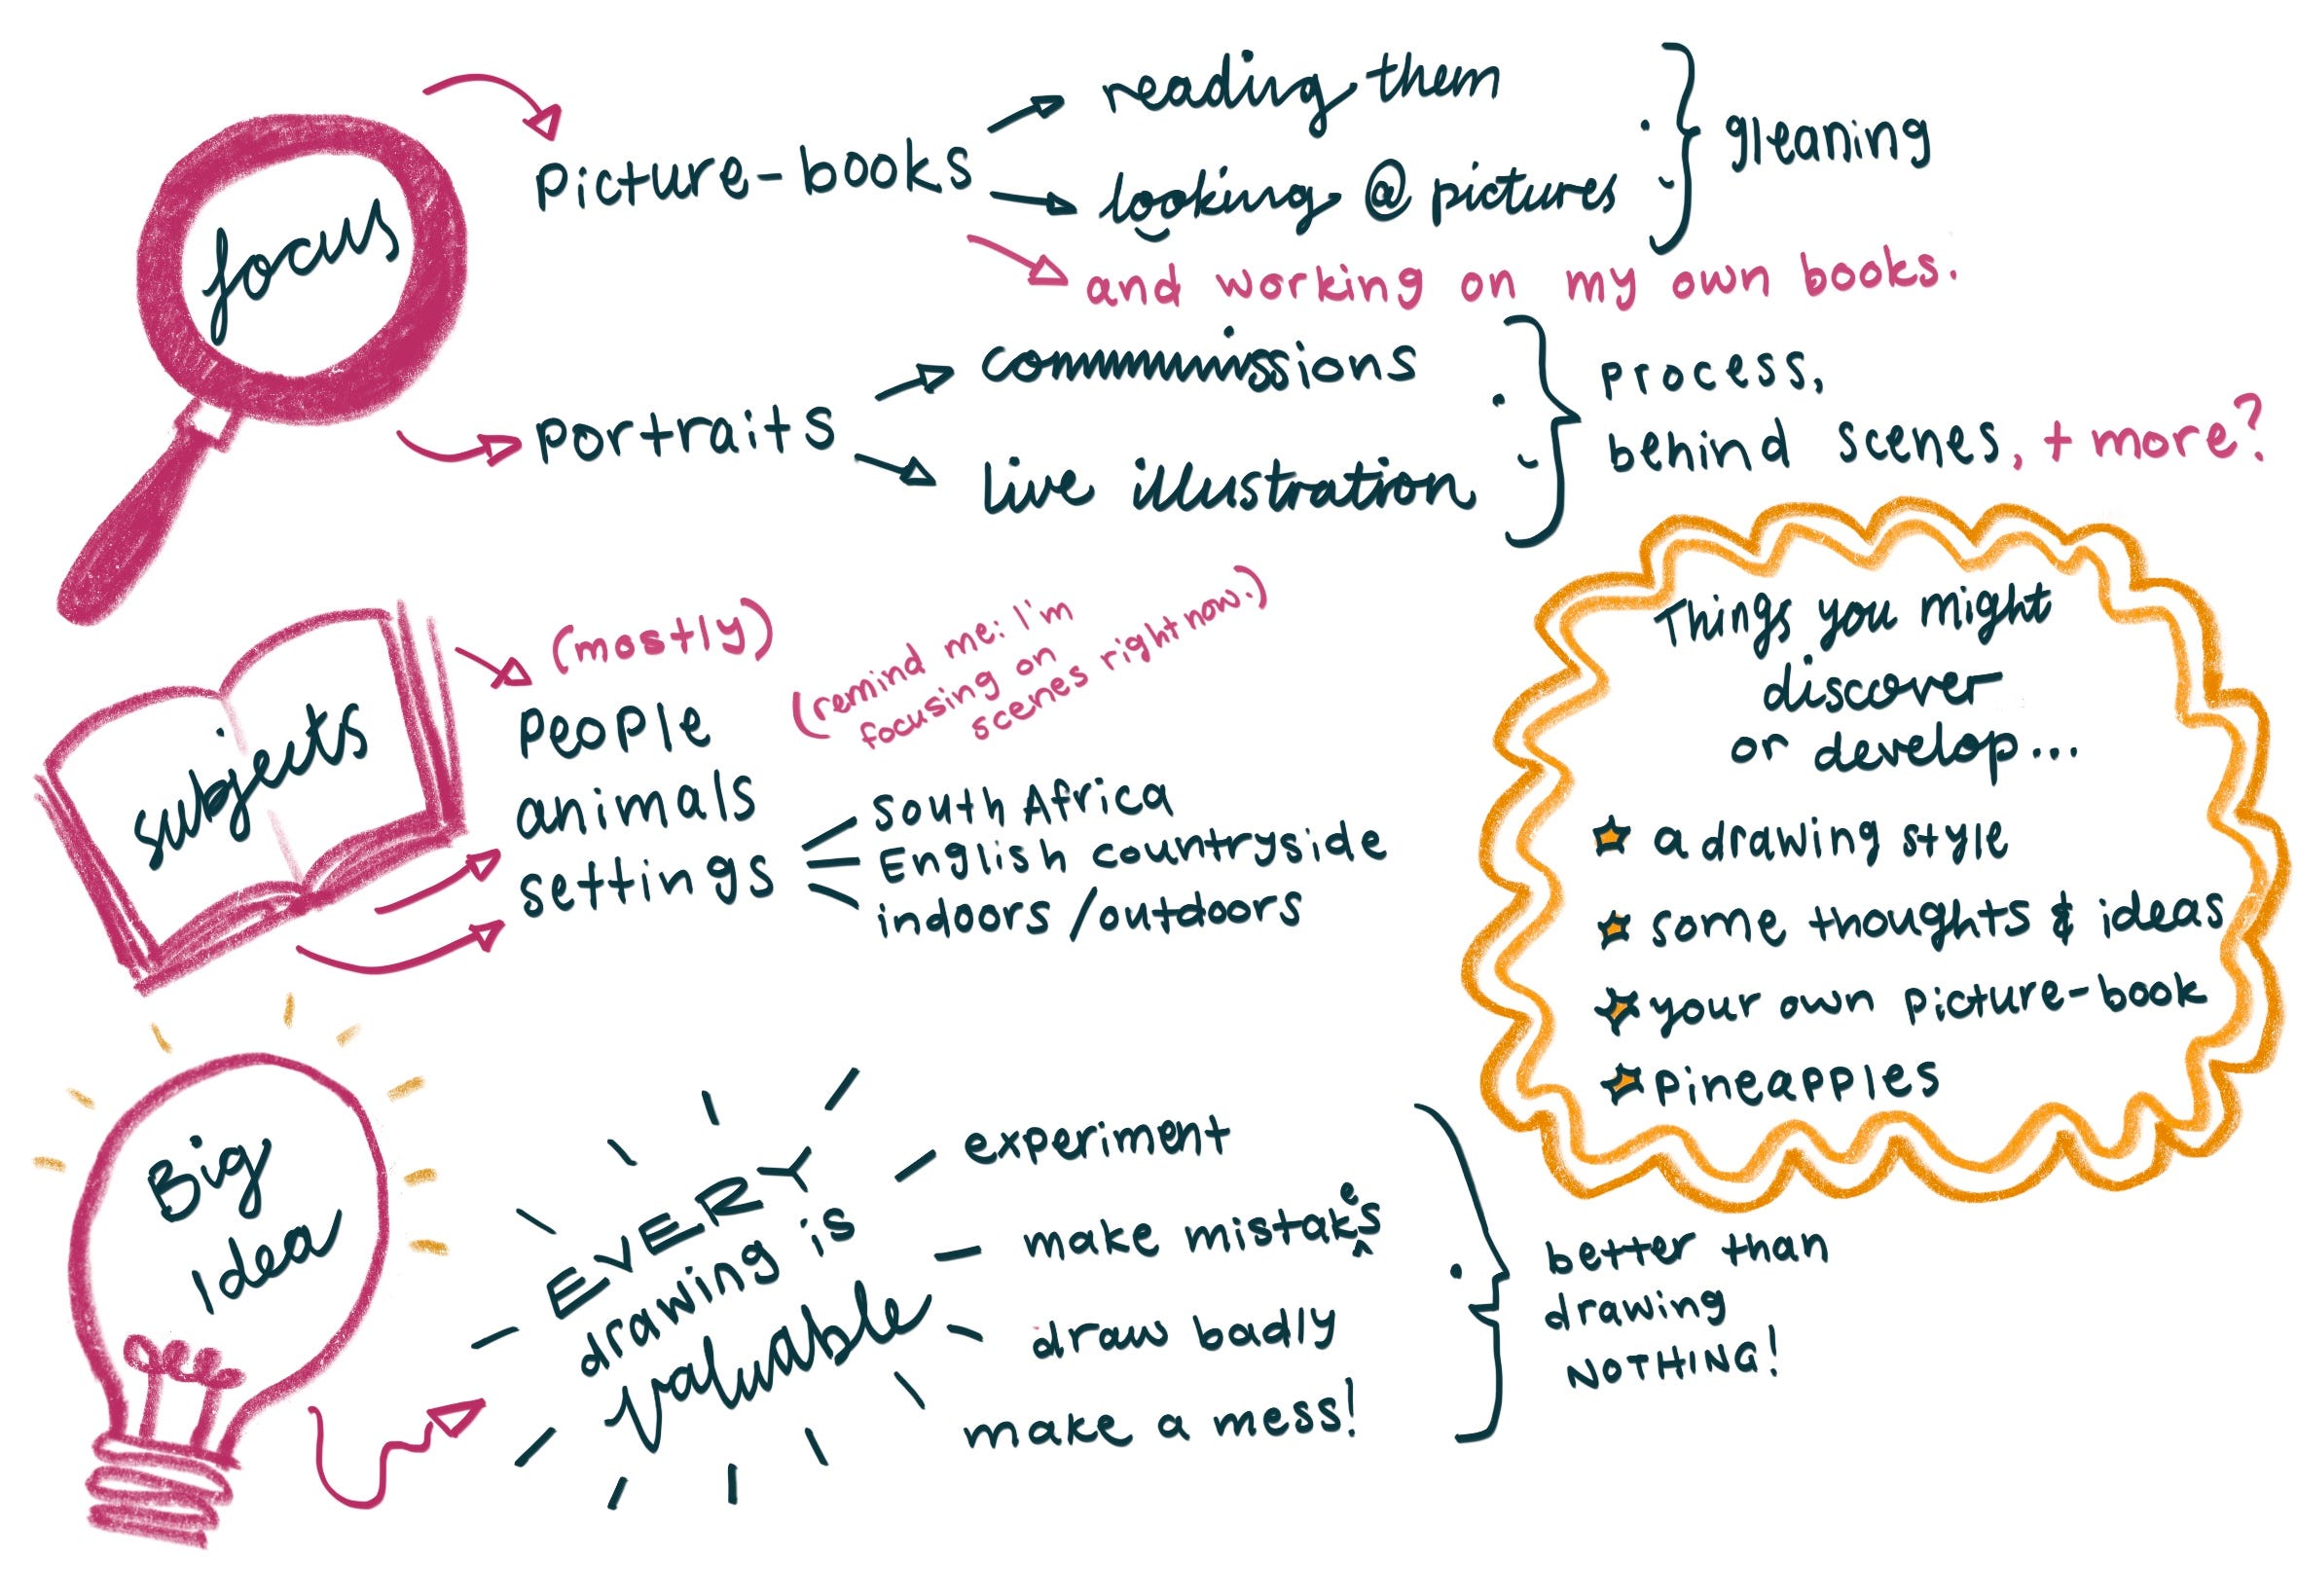 focus
picture-books
reading them
looking @ pictures
gleaning
and working on my own books.
portraits
commmmissions
live illustration
process,
behind scenes, + more?
subjects
(mostly)
(remind me: I'm
focusing on
scenes right now.)
people
animals
settings
South Africa
English countryside
indoors / outdoors
Things you might
discover
or develop...
a drawing style
some thoughts & ideas
your own picture-book
pineapples
Big
Idea
EVERY
drawing is
valuable
experiment
make mistakes
draw badly
make a mess!
better than
drawing
NOTHING!